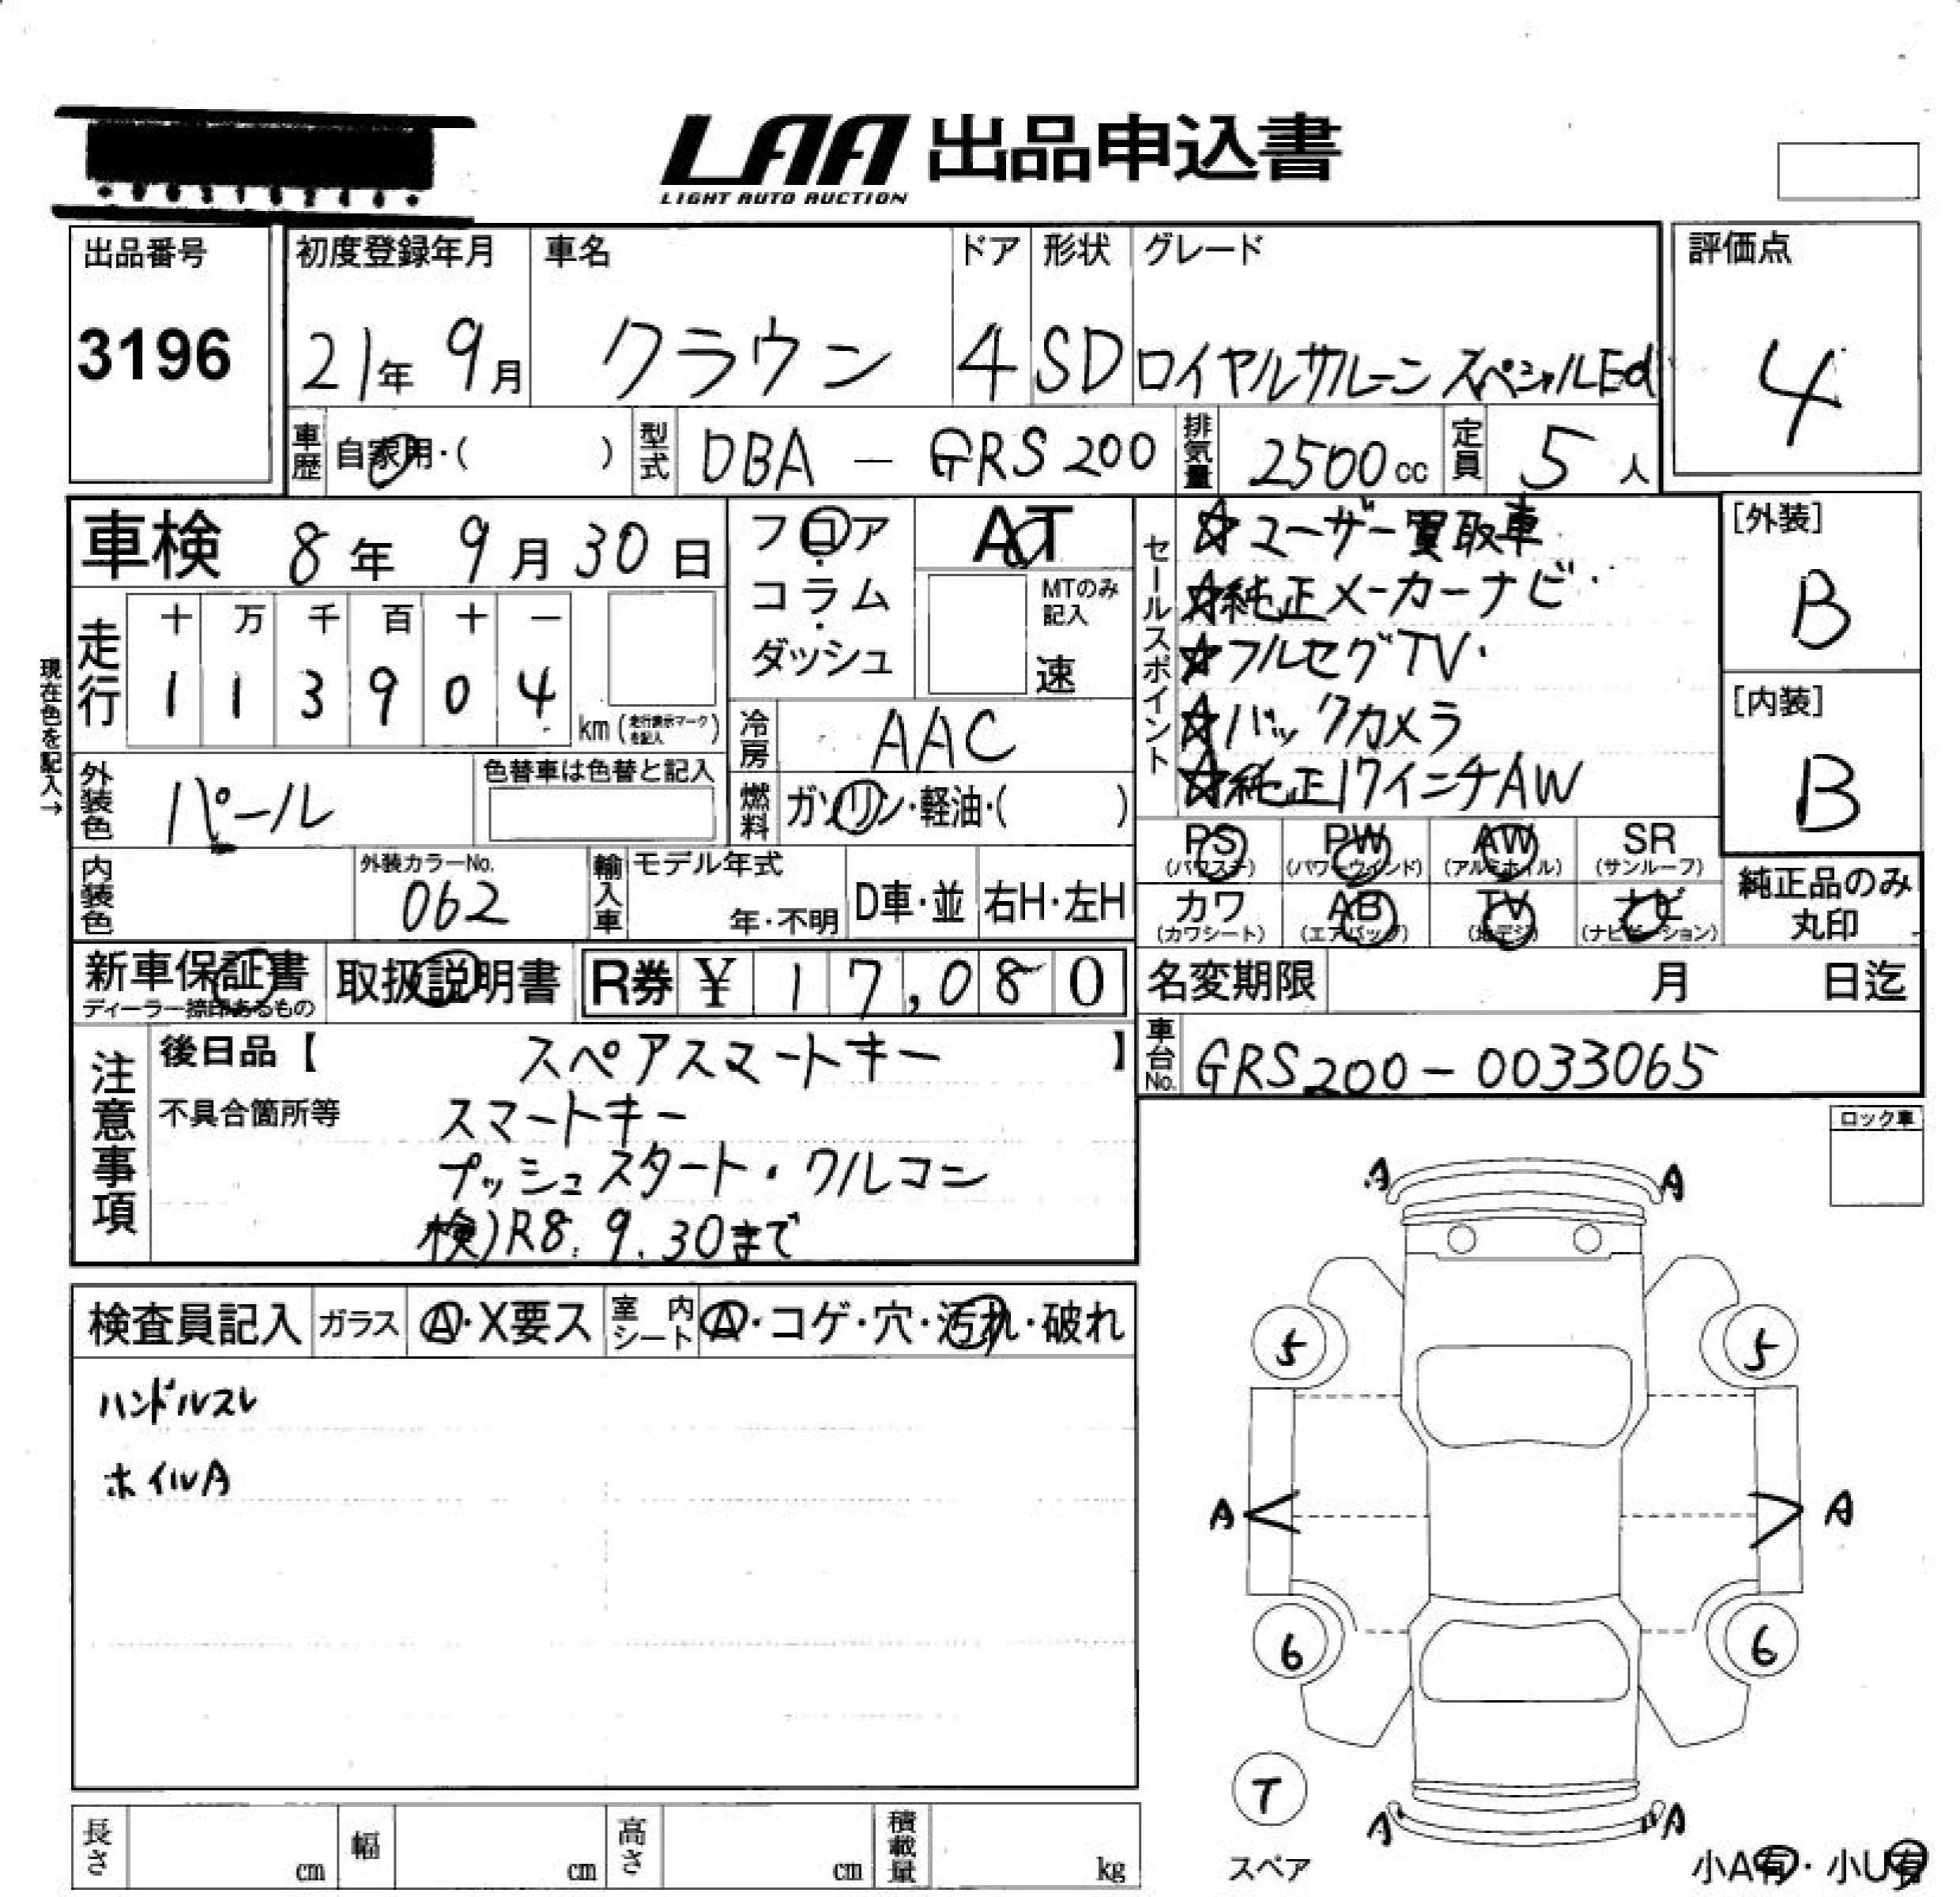 LAA 出品申込書
LIGHT AUTO AUCTION
出品番号
3196
初度登録年月
21年 9月
車名
クラウン
ドア
4
形状
SD
グレード
ロイヤルサルーン スペシャルEd
評価点
4
車歴 自家用・( )
型式 DBA - GRS200
排気量 2500cc
定員 5人
車検 8年 9月 30日
走行
十 万 千 百 十 一
1 1 3 9 0 4
km (走行表示マークを記入)
現在色を記入→
外装色 パール
色替車は色替と記入
内装色
外装カラーNo.
062
フロア
・
コラム
・
ダッシュ
AT
MTのみ記入
速
冷房 AAC
燃料 ガソリン・軽油・( )
輸入車 モデル年式
年・不明
D車・並
右H・左H
セールスポイント
☆ユーザー買取車
☆純正メーカーナビ・
☆フルセグTV・
☆バックカメラ
☆純正17インチAW
[外装]
B
[内装]
B
PS
(パワステ)
PW
(パワーウインド)
AW
(アルミホイル)
SR
(サンルーフ)
カワ
(カワシート)
AB
(エアバッグ)
TV
(地デジ)
ナビ
(ナビゲーション)
純正品のみ
丸印
新車保証書
ディーラー捺印あるもの
取扱説明書
R券 ¥ 17,080
名変期限 月 日迄
車台No. GRS200-0033065
注意事項
後日品【 スペアスマートキー 】
不具合箇所等 スマートキー
プッシュスタート・クルコン
検)R8.9.30まで
ロック車
検査員記入
ガラス A・X要ス
室内シート A・コゲ・穴・汚れ・破れ
ハンドルスレ
ホイルA
A A
5 5
A A
6 6
T
スペア
A A
小A有・小U有
長さ cm
幅 cm
高さ cm
積載量 kg